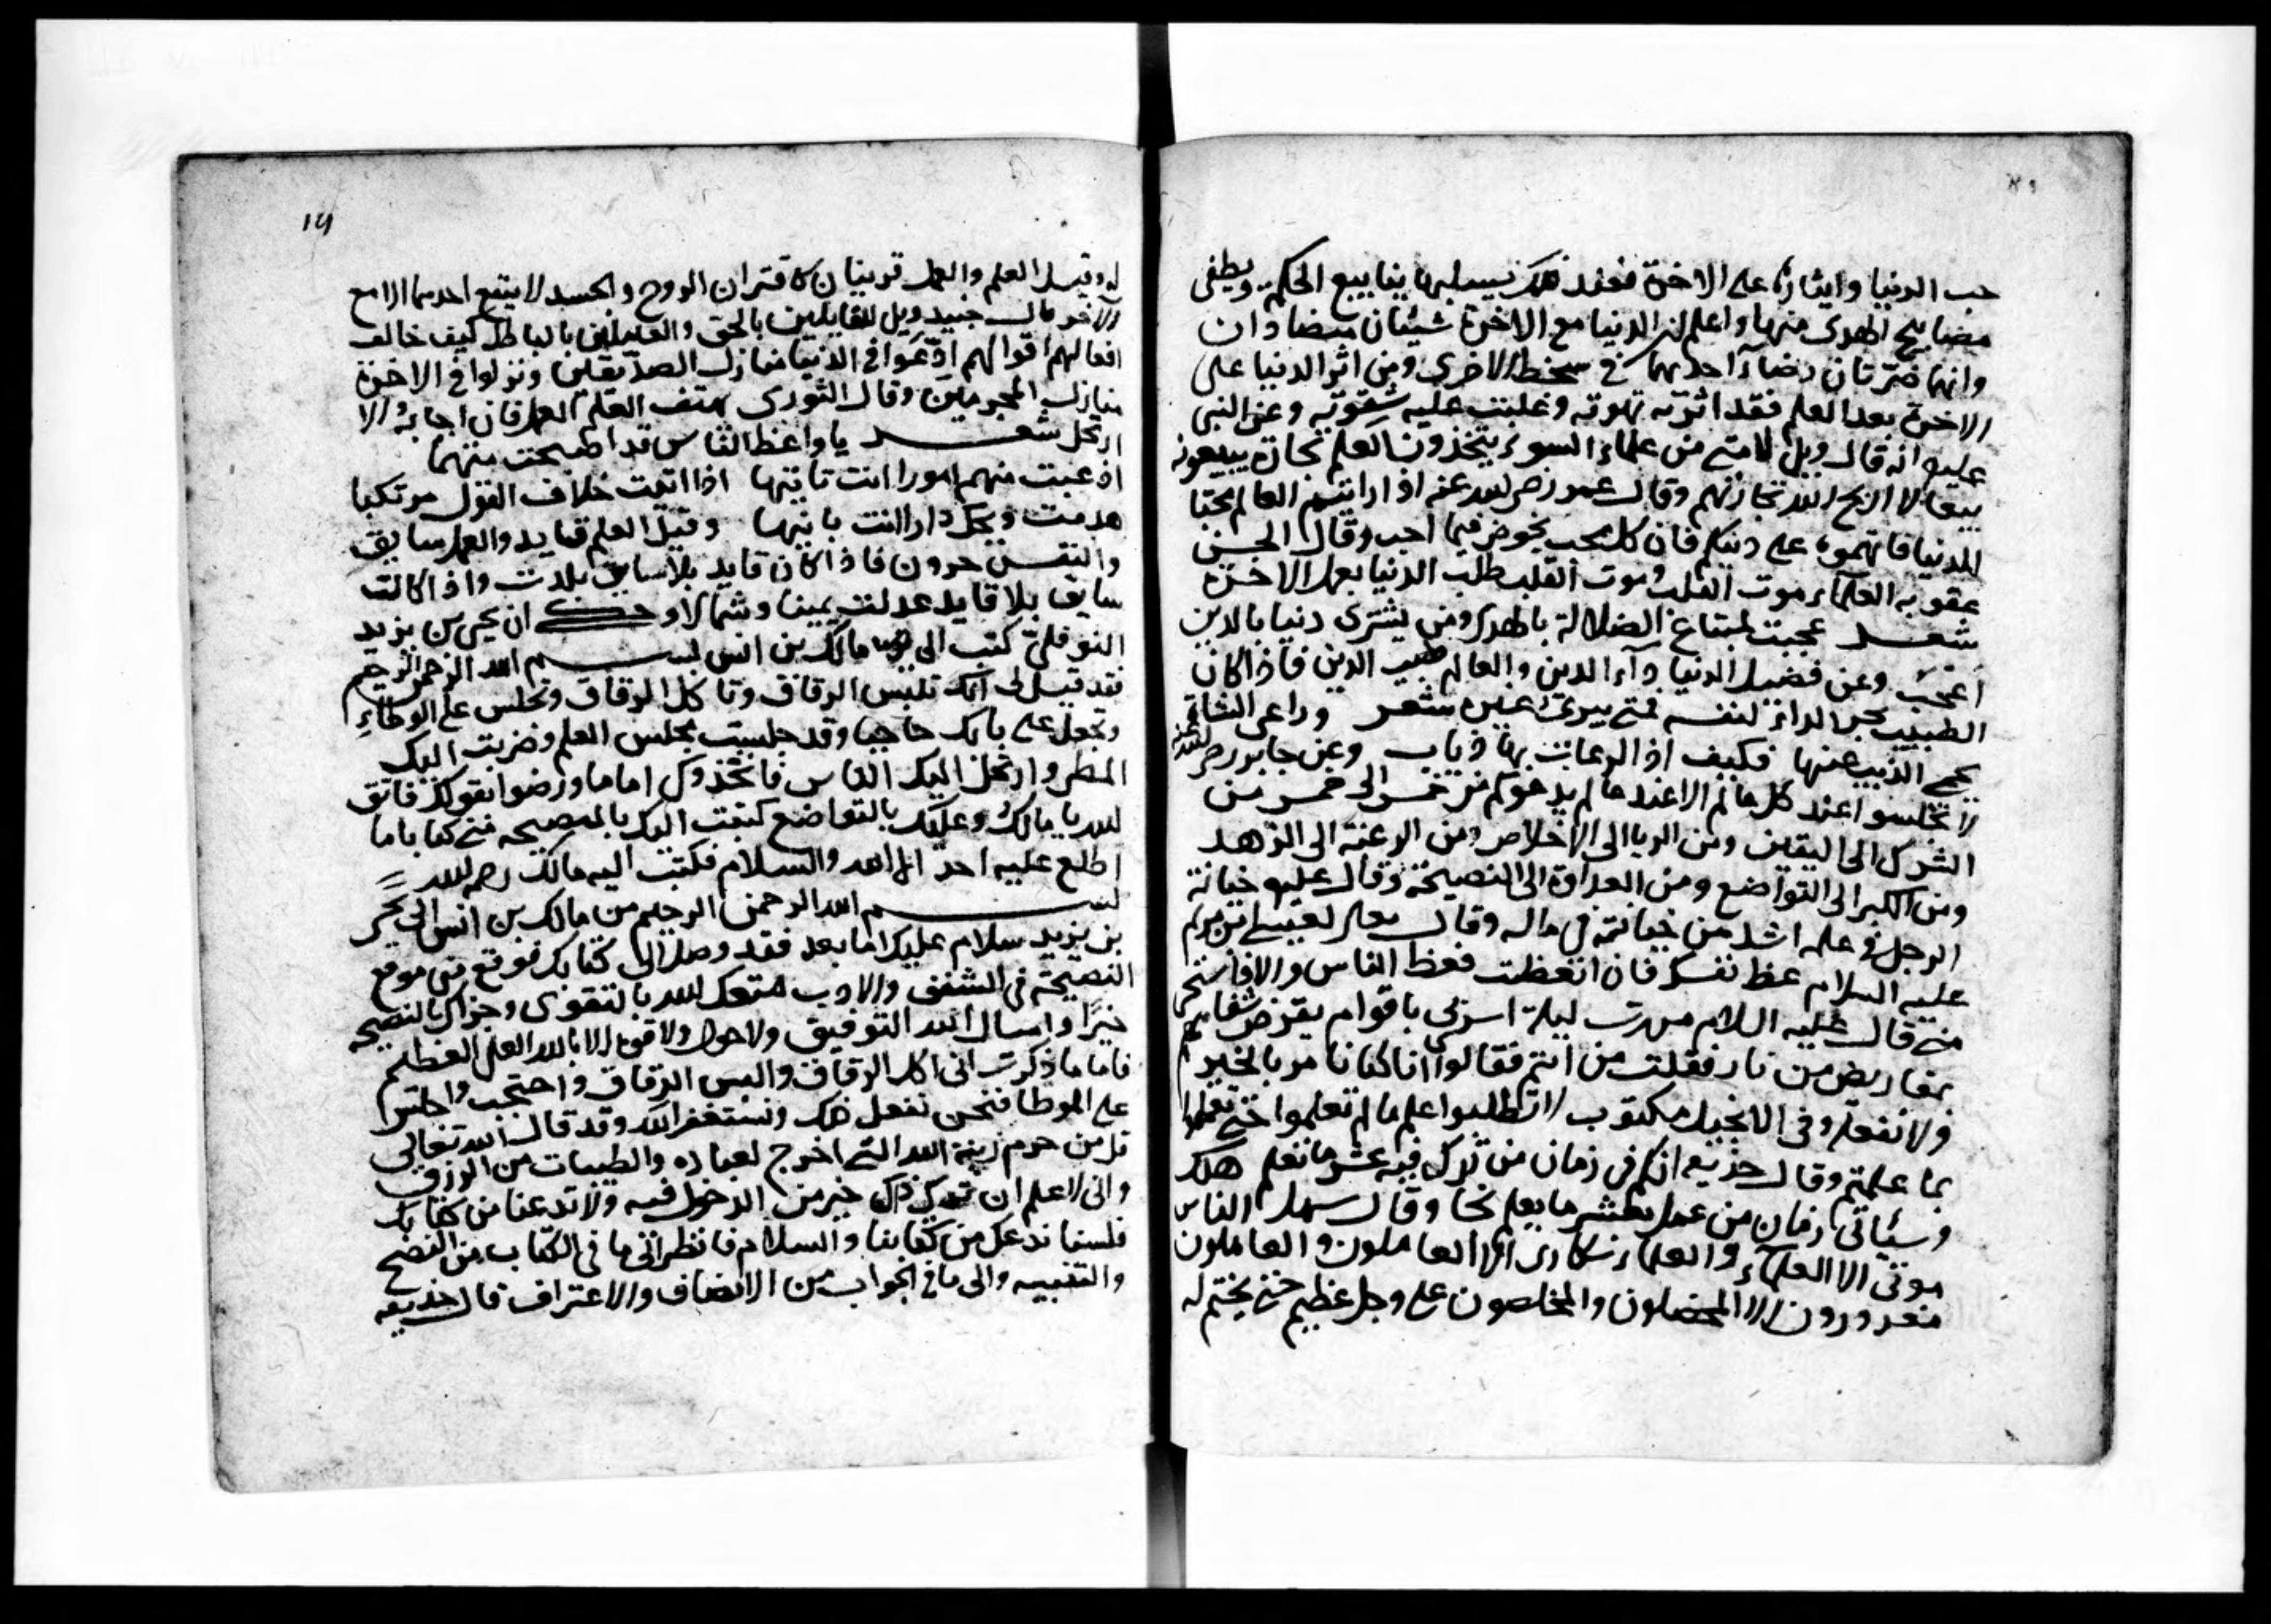 حب الدنيا وايثارها على الاخرة فعند ذلك يسلبها ينابيع الحكم ويطفى
مصابيح الهدى منها واعلم ان الدنيا مع الاخرة شيئان متضادان
وانهما ضرتان رضاء احديهما في سخط الاخرى ومن اثر الدنيا على
الاخرة بعد العلم فقد اثرته شهوته وغلبت عليه شقوته وعن النبي
عليه انه قال ويل لامتي من علماء السوء يتخذون العلم تجارة يبيعونه
بيعا لا اربح الله تجارتهم وقال عمر رضى الله عنه اذا رايتم العالم محبا
للدنيا فاتهموه على دينكم فان كل محب يخوض فيما احب وقال الحسن
عقوبه العلماء موت القلب وموت القلب طلب الدنيا بعمل الاخرة
شعر عجبت لمبتاع الضلالة بالهدى ومن يشترى دنيا بالدين
اعجب وعن فضيل الدنيا داء الدين والعالم طبيب الدين فاذا كان
الطبيب يجر الداء لنفسه فمتى يبرئ غيره شعر وراعى الشاة
يحمى الذيب عنها فكيف اذا الرعاة بها ذياب وعن جابر رضى الله عنه
لا تجلسوا عند كل عالم الا عند عالم يدعوكم من خمس الى خمس من
الشرك الى اليقين ومن الريا الى الاخلاص ومن الرغبة الى الزهد
ومن الكبر الى التواضع ومن العداوة الى النصيحة وقال عليه خيانة
الرجل في علمه اشد من خيانته في ماله وقال تعالى لعيسى ابن مريم
عليه السلام عظ نفسك فان اتعظت فعظ الناس والا فاستحى
منى قال عليه السلام مررت ليلة اسرى بى باقوام يقرض شفاههم
بمقاريض من نار فقلت من انتم فقالوا انا كنا نامر بالخير
ولا نفعله وفى الانجيل مكتوب لا تطلبوا علم ما لم تعلموا حتى تعملوا
بما علمتم وقال حذيفه انكم فى زمان من ترك فيه عشر ما تعلم هلك
وسيأتى زمان من عمل بعشر ما يعلم نجا وقال سهل الناس
موتى الا العلماء والعلماء سكارى الا العاملون والعاملون
مغرورون الا المخلصون والمخلصون على وجل عظيم حتى يختم له
١٩
له وقيل العلم والعمل قرينان كاقتران الروح والجسد لا ينتفع احدهما الا مع
الآخر قال جنيد ويل للقايلين بالحق والعاملين بالباطل كيف خالف
افعالهم اقوالهم ادعوا في الدنيا منازل الصديقين ونزلوا في الاخرة
منازل المجرمين وقال الثورى يهتف العلم العمل فان اجابه والا
ارتحل شعر يا واعظ الناس قد اصبحت متهما
اذ عبت منهم امورا انت تاتيها اذا اتيت خلاف القول مرتكبا
هدمت ويحك دارا انت بانيها وقيل العلم قايد والعمل سايق
والنفس حرون فاذا كان قايد بلا سايق بلدت واذا كانت
سايق بلا قايد عدلت يمينا وشمالا وحكى ان يحيى بن يزيد
النوفلى كتب الى مالك بن انس بسم الله الرحمن الرحيم
فقد قيل لى انك تلبس الرقاق وتاكل الرقاق وتجلس على الوطاء
وتجعل على بابك حاجبا وقد جلست مجلس العلم وضربت اليك
المطى وارتحل اليك الناس فاتخذوك اماما ورضوا بقولك فاتق
الله يا مالك وعليك بالتواضع كتبت اليك بالنصيحه منى كتابا ما
اطلع عليه احد الا الله والسلام فكتب اليه مالك رحمه الله
بسم الله الرحمن الرحيم من مالك بن انس الى يحيى
بن يزيد سلام عليك اما بعد فقد وصل الى كتابك فوقع منى موقع
النصيحة فى الشفق والادب متعك الله بالتقوى وجزاك بالنصيحه
خيرا واسال الله التوفيق ولا حول ولا قوة الا بالله العلى العظيم
فاما ما ذكرت انى اكل الرقاق والبس الرقاق واحتجب واجلس
على الموطا فنحن نفعل ذلك ونستغفر الله وقد قال الله تعالى
قل من حرم زينة الله التى اخرج لعباده والطيبات من الرزق
وانى لاعلم ان ترك ذلك خير من الدخول فيه ولا تدعنا من كتابك
فلسنا ندعك من كتابنا والسلام فانظر الى ما فى الكتاب من النصح
والتنبيه والى ما في الجواب من الانصاف والاعتراف قال حذيفه